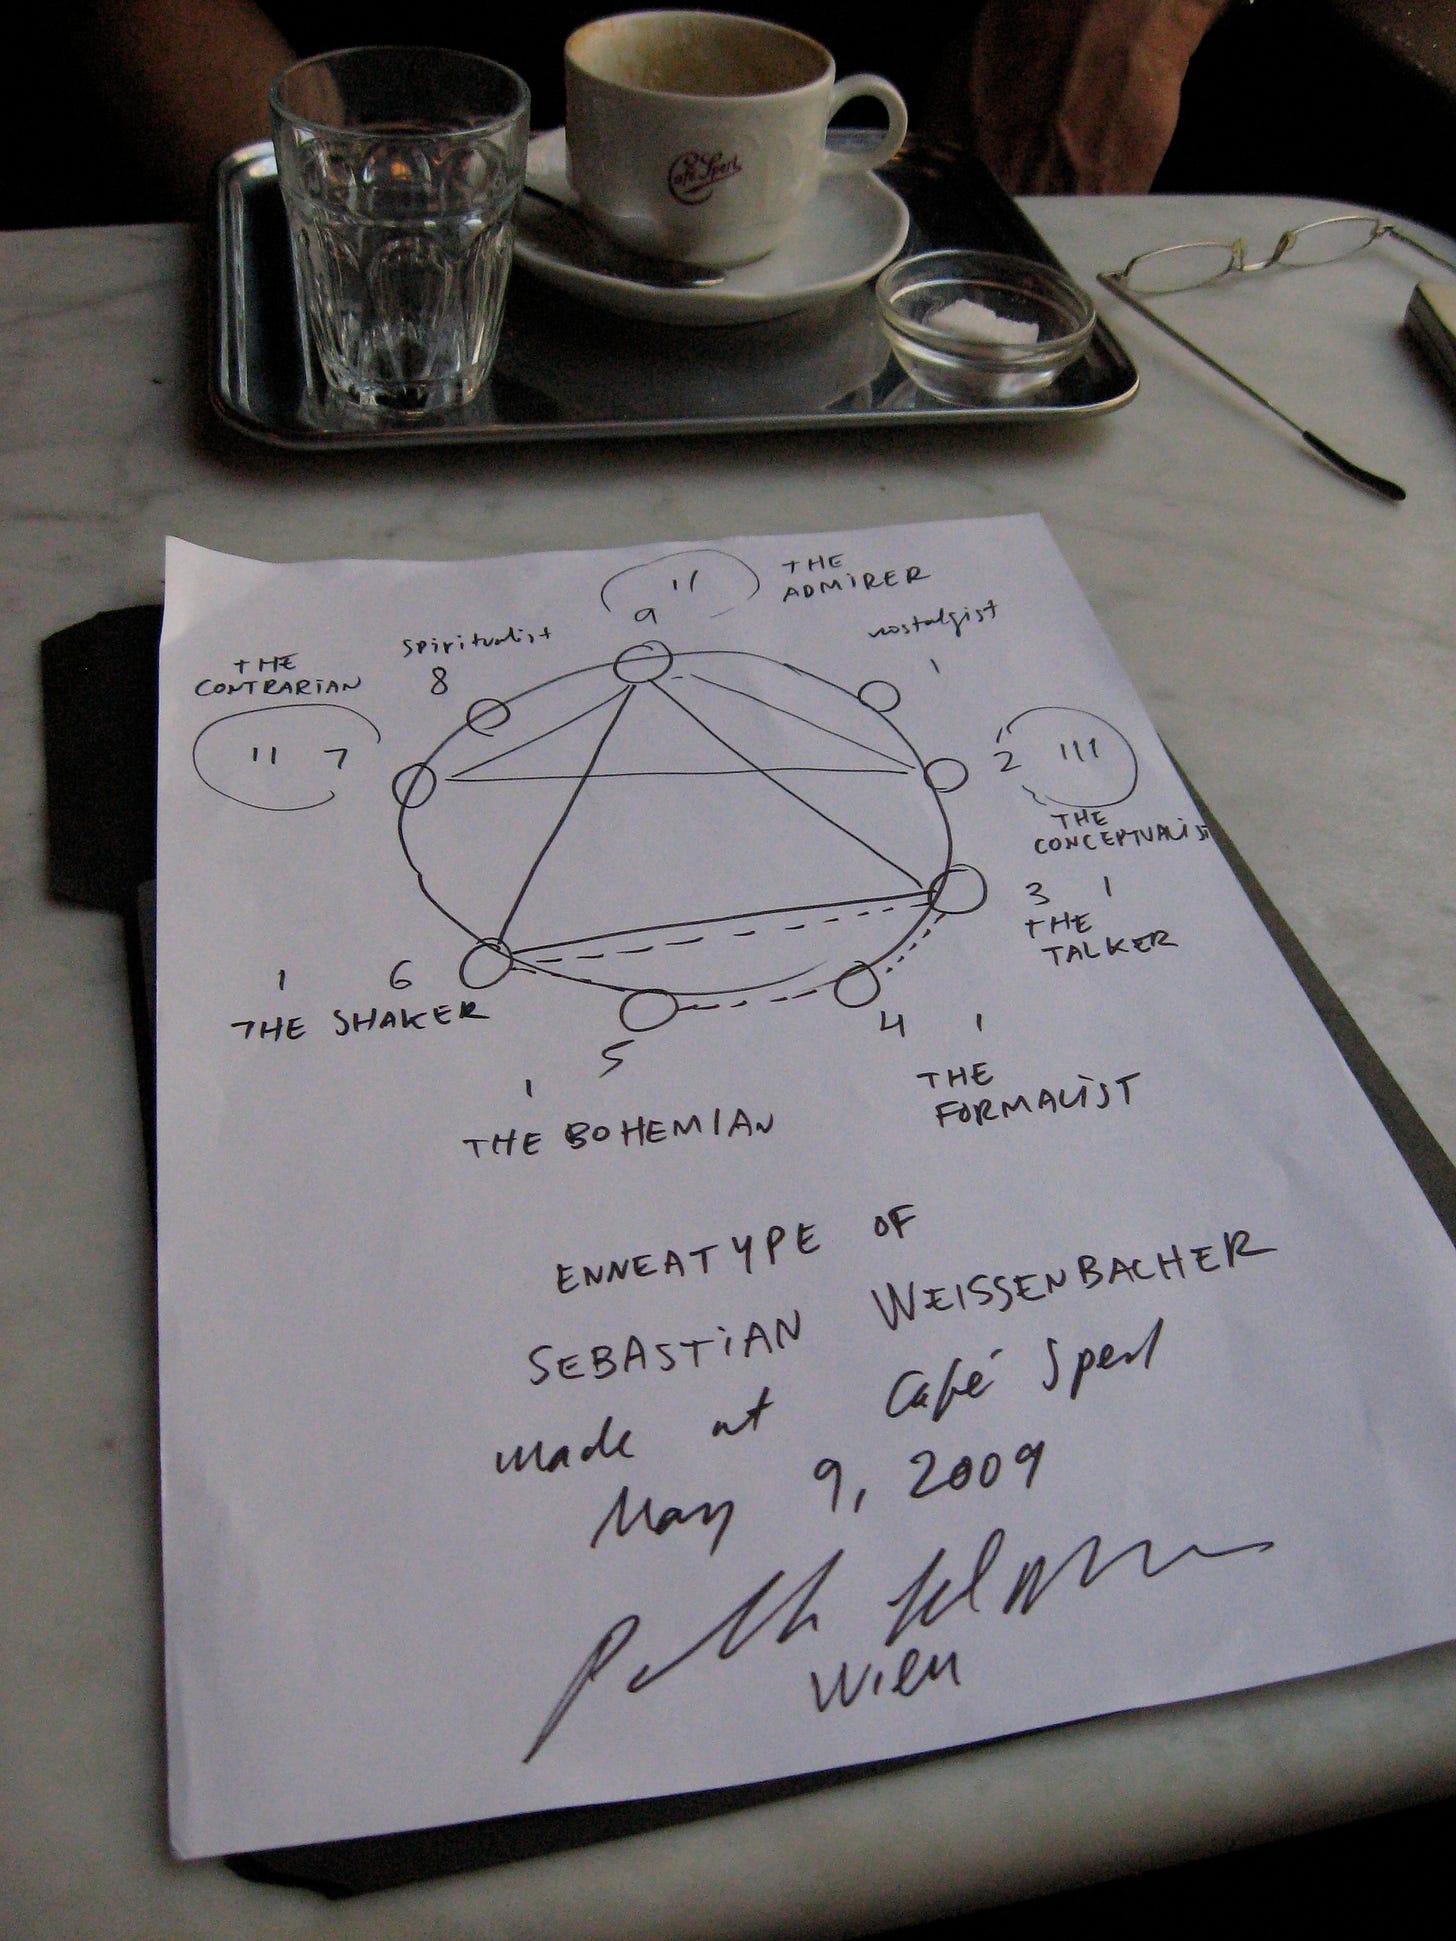 Café Sperl
11
THE
ADMIRER
9
nostalgist
1
spiritualist
8
THE
CONTRARIAN
11 7
2 111
THE
CONCEPTUALIST
3 1
THE
TALKER
1 6
THE SHAKER
4 1
THE
FORMALIST
5
1
THE BOHEMIAN
ENNEATYPE OF
SEBASTIAN WEISSENBACHER
made at Café Sperl
May 9, 2009
Wien